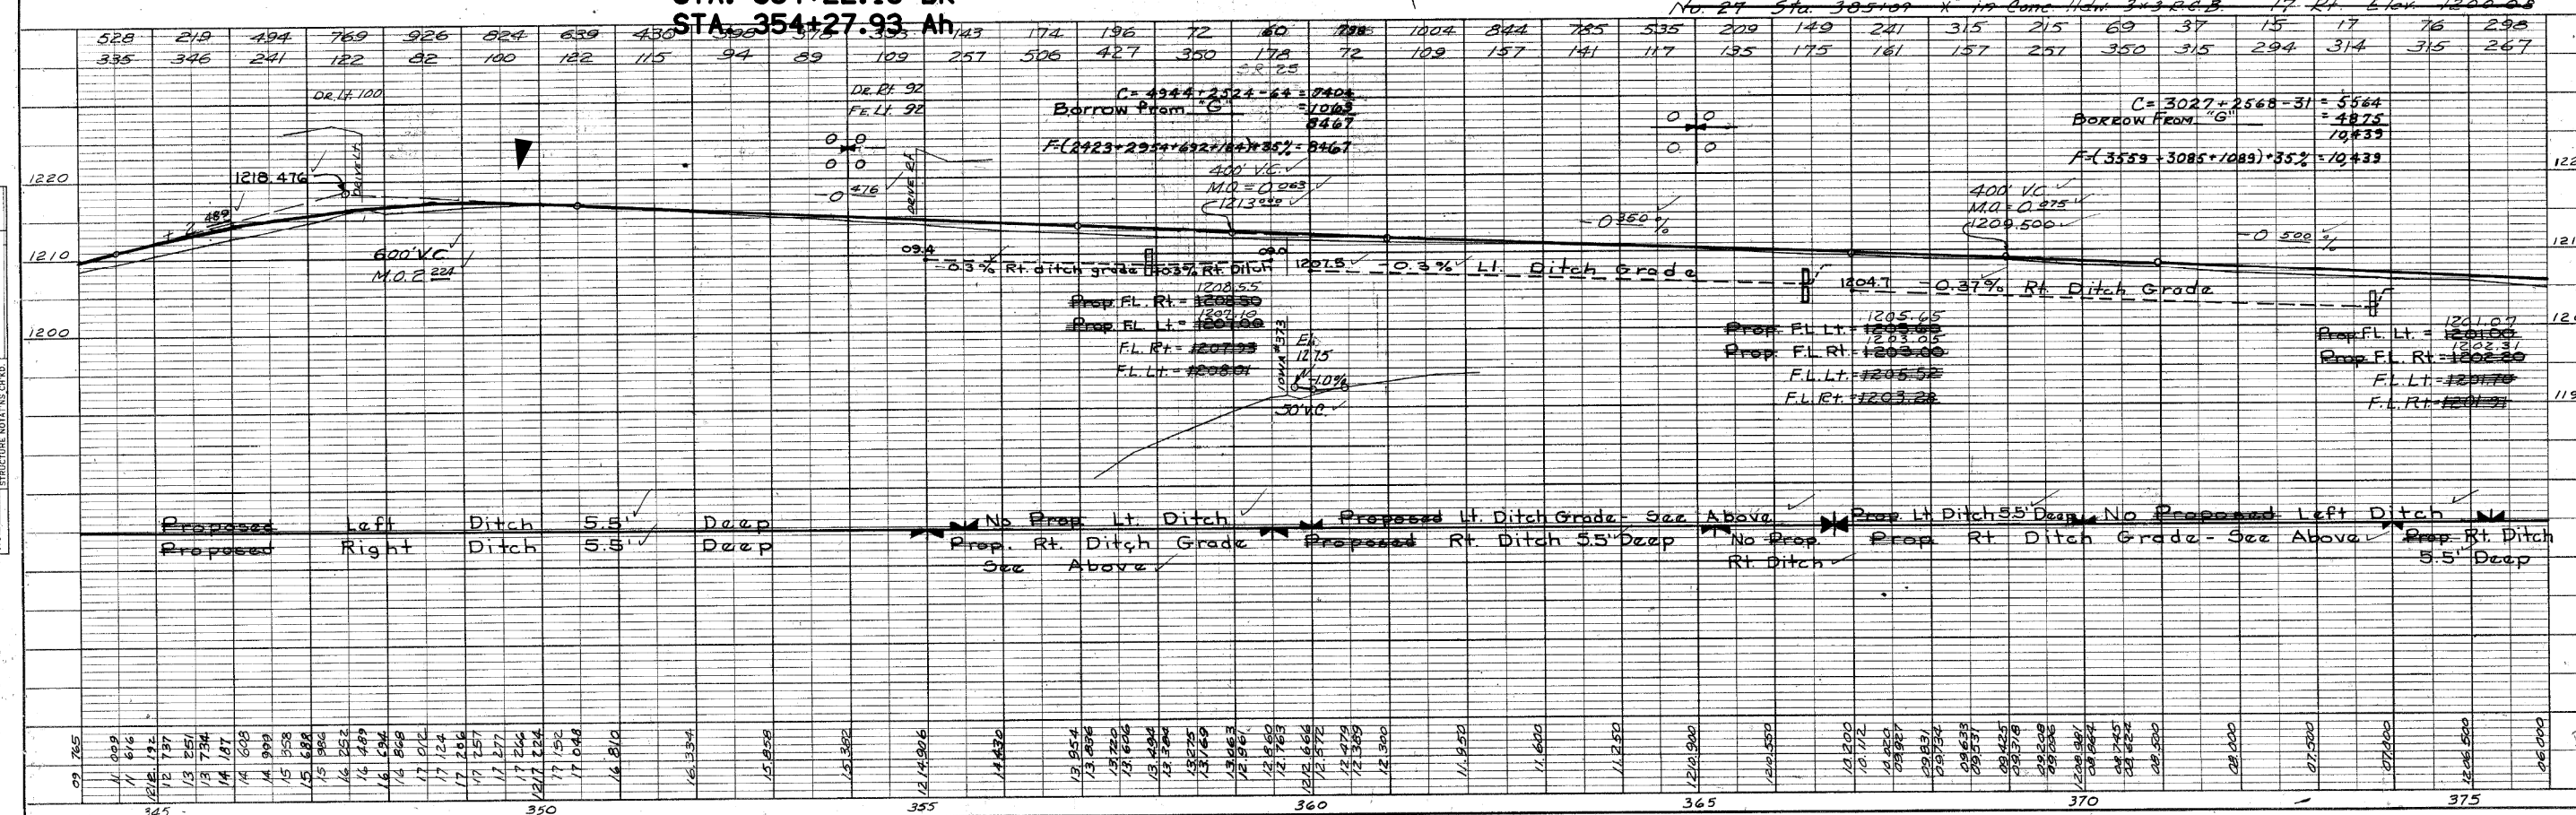 STA. 354+27.93 Ah
No. 27 Sta. 385+09 "X" in Conc. Hdw. 3x3 R.C.B. 17' Rt. Elev. 1200.03
528 219 494 769 926 824 639 430 143 174 196 72 60 1004 844 785 535 209 149 241 315 215 69 37 15 17 76 298
335 346 241 122 82 100 122 115 94 89 109 257 506 427 350 178 72 109 157 141 117 135 175 161 157 251 350 315 294 314 315 267
S.R. 25
Dr. Lt. 100
Dr. Rt. 92
Fe. Lt. 92
C= 4944+2524-64 = 7404
Borrow from "G" = 1063
8467
F=(2423+2954+692+184)+35% = 8467
C= 3027+2568-31 = 5564
BORROW FROM "G" = 4875
10,439
F=(3559+3085+1089)+35% = 10,439
1220
1218.476
DRIVE LT.
-0.476
DRIVE RT.
400' V.C.
M.O. = 0.063
1213.000
-0.350 %
400' V.C.
M.O. = 0.075
1209.500
-0.500 %
+ 2.489
600' V.C.
M.O. 2.224
1210
09.4
-0.3% Rt. ditch grade
+0.3% Rt. Ditch
09.0
1207.5 -0.3% Lt. Ditch Grade
1204.7 -0.37% Rt. Ditch Grade
1208.55
Prop. F.L. Rt. = 1208.50
1207.10
Prop. F.L. Lt. = 1207.00
F.L. Rt. = 1207.93
F.L. Lt. = 1208.01
IOWA #373
El.
1275
-1.0%
50' V.C.
1205.65
Prop. F.L. Lt. = 1205.60
1203.05
Prop. F.L. Rt. = 1203.00
F.L. Lt. = 1205.52
F.L. Rt. = 1203.28
1201.07
Prop. F.L. Lt. = 1201.00
1202.31
Prop. F.L. Rt. = 1202.20
F.L. Lt. = 1201.70
F.L. Rt. = 1201.91
1200
STRUCTURE NOTAT'NS CH'KD.
Proposed Left Ditch 5.5' Deep
Proposed Right Ditch 5.5' Deep
No Prop. Lt. Ditch
Prop. Rt. Ditch Grade
See Above
Proposed Lt. Ditch Grade - See Above
Proposed Rt. Ditch 5.5' Deep
No Prop.
Rt. Ditch
Prop. Lt. Ditch 5.5' Deep
No Proposed Left Ditch
Prop. Rt. Ditch Grade - See Above
Prop. Rt. Ditch
5.5' Deep
09.765 11.009 11.616 1212.192 12.737 13.251 13.734 14.187 14.608 14.999 15.358 15.688 15.986 16.252 16.489 16.694 16.868 17.012 17.124 17.206 17.257 17.277 17.266 1217.224 17.152 17.048 16.810 16.334 15.858 15.382 1214.906 14.430 13.954 13.836 13.720 13.606 13.494 13.384 13.275 13.169 13.063 12.961 12.860 12.763 1212.666 12.572 12.479 12.389 12.300 11.950 11.600 11.250 1210.900 1210.550 10.200 10.112 10.020 09.927 09.831 09.734 09.633 09.531 09.425 09.318 09.208 09.096 1208.981 08.864 08.745 08.624 08.500 08.000 07.500 07.000 1206.500 06.000
345 350 355 360 365 370 375